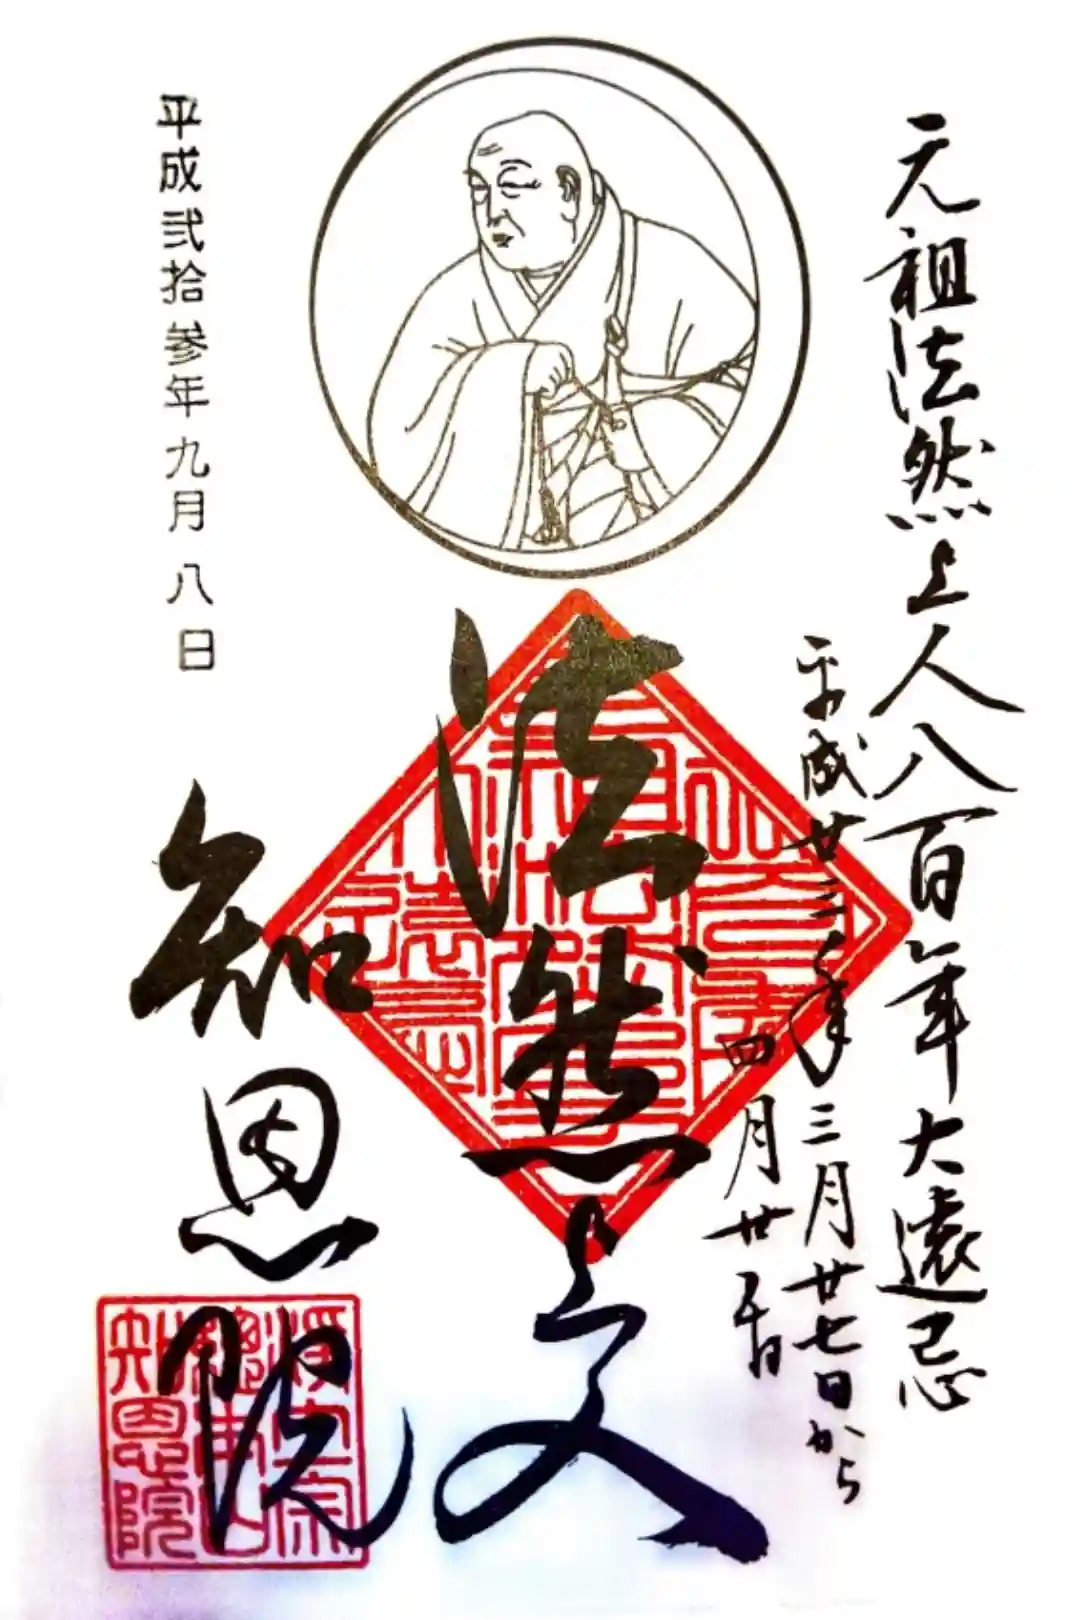 元祖法然上人八百年大遠忌
平成廿三年三月廿七日から
四月廿五日
法然上人
知恩院
平成弐拾参年九月八日
浄土宗
総本山
知恩院